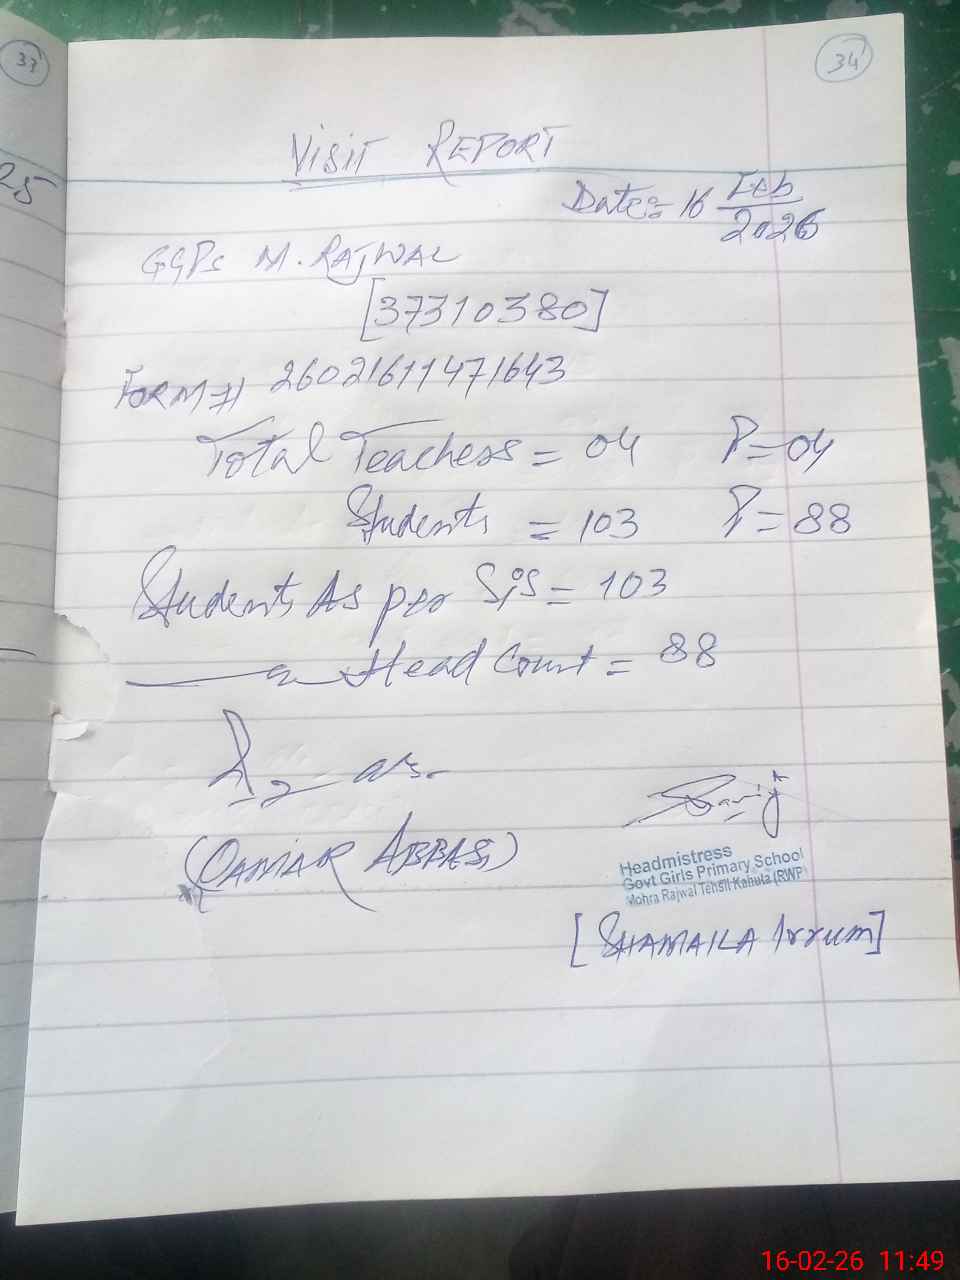 33
34
25
VISIT REPORT
Date:= 16 Feb
2026
GGPS M. RAJWAL
[37310380]
FORM # 26021611471643
Total Teachers = 04 P=04
Students = 103 P=88
Students As per SiS = 103
Head Count = 88
(QAMAR ABBAS)
Headmistress
Govt Girls Primary School
Mohra Rajwal Tehsil Kahuta (RWP)
[SHAMAILA Irrum]
16-02-26 11:49